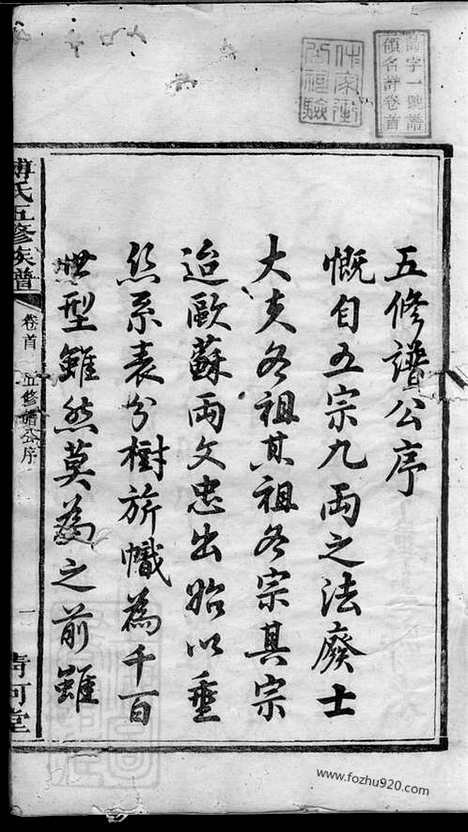 五修譜公序
慨自五宗九兩之法廢士
大夫各祖其祖各宗其宗
迨歐蘇兩文忠出始以垂
絲系表分樹旂幟為千百
世型雖然莫為之前雖
傅氏五修族譜
卷首
五修譜公序
一
清河堂
字一號譜
領名詩卷首
www.fozhu920.com